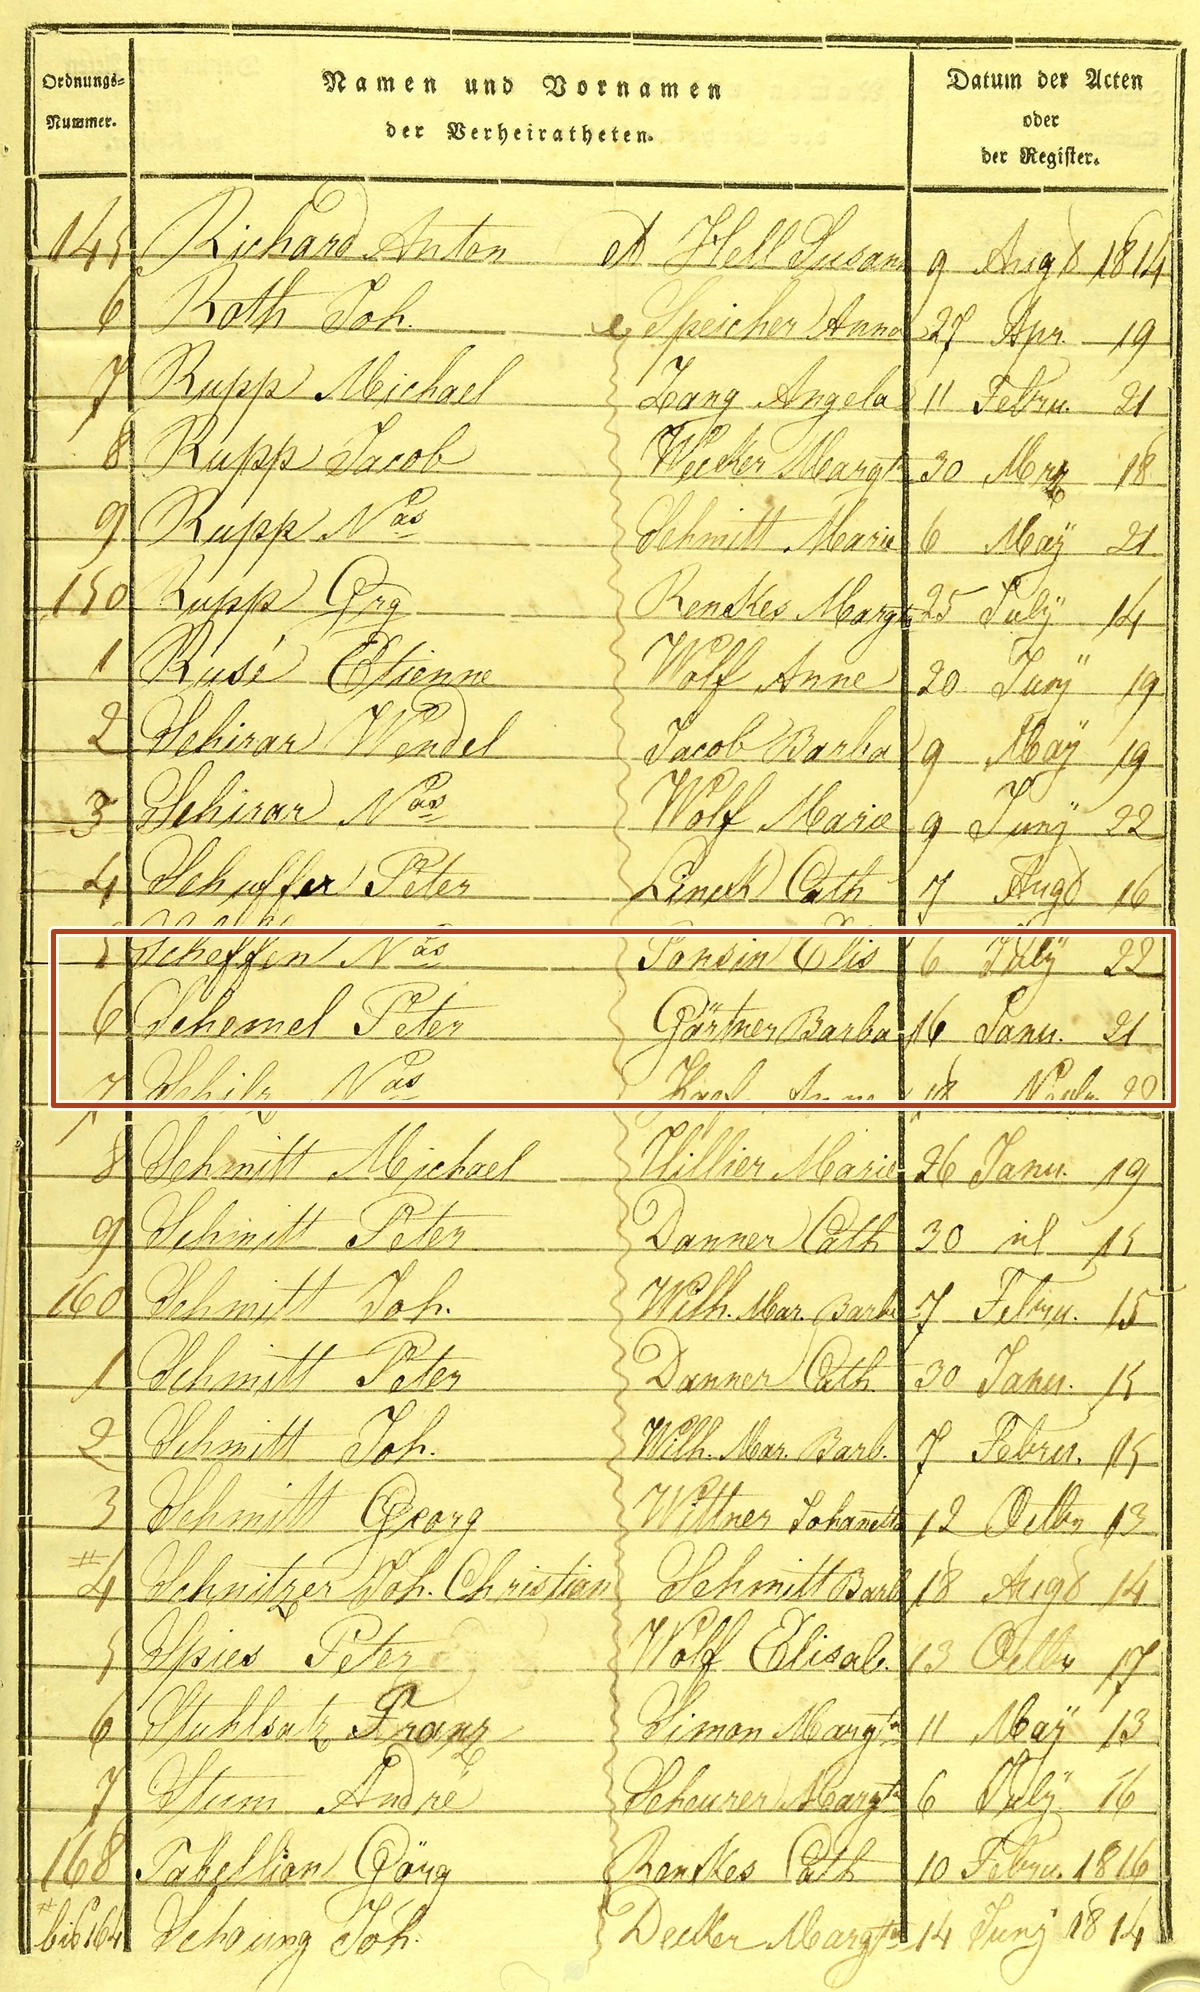 Ordnungs=
Nummer.
Namen und Vornamen
der Verheiratheten.
Datum der Acten
oder
der Register.
145 Richard Anton et Hell Susan 9 Augst 1814
6 Roth Joh. e Speicher Anna 27 Apr. 19
7 Rupp Michael Zang Angela 11 Febru. 21
8 Rupp Jacob Wecker Margta 30 Mrz 18
9 Rupp Nas Schmitt Marie 6 Maÿ 21
150 Rupp Grg Renkes Margta 25 Julÿ 14
1 Rusé Etienne Wolf Anne 20 Junÿ 19
2 Schirar Wendel Jacob Barba 9 Maÿ 19
3 Schirar Nas Wolf Marie 9 Junÿ 22
4 Scheffer Peter Linck Cath 7 Augst 16
5 Scheffen Nas Ponsin Elis 6 Julÿ 22
6 Schemel Peter Gärtner Barba 16 Janu. 21
7 Schilz Nas Anne 18 20
8 Schmitt Michael Villier Marie 26 Janu. 19
9 Schmitt Peter Danner Cath 30 id 15
160 Schmitt Joh. Wilh. Mar. Barb. 7 Febru. 15
1 Schmitt Peter Danner Cath 30 Janu. 15
2 Schmitt Joh. Wilh. Mar. Barb. 7 Febru. 15
3 Schmitt Georg Wittner Johanetta 12 Octbr 13
# 4 Schnitzer Joh. Christian Schmitt Barb 18 Augst 14
5 Spies Peter Wolf Elisab. 13 Octbr 17
6 Stuhlsatz Franz Simon Margta 11 Maÿ 13
7 Stum André Scheurer Margta 6 Julÿ 16
168 Tabellion Görg Renkes Cath 10 Febru. 1816
# bis 164 Schoung Joh. Decker Margta 14 Junÿ 1814